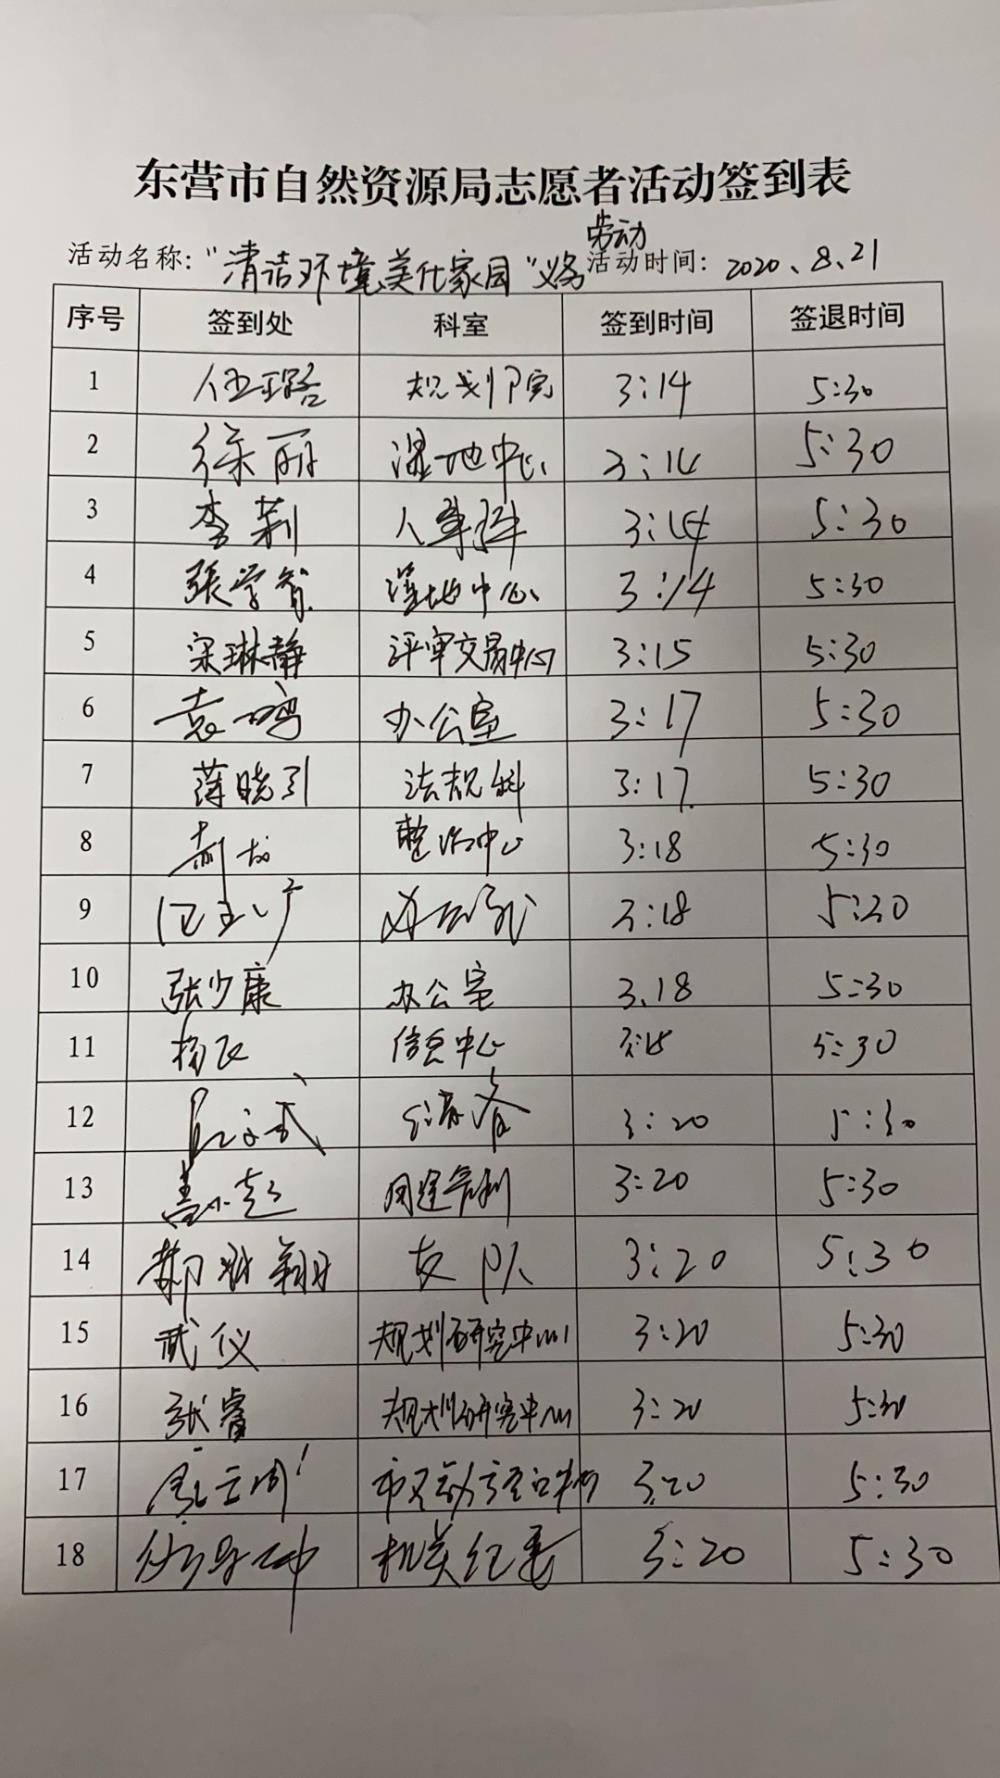 东营市自然资源局志愿者活动签到表
劳动
活动名称：“清洁环境美化家园”义务 活动时间：2020、8、21
序号 签到处 科室 签到时间 签退时间
1 伍璐 规划院 3:14 5:30
2 徐丽 湿地中心 3:14 5:30
3 李莉 人事科 3:14 5:30
4 張学智 湿地中心 3:14 5:30
5 宋琳静 评审交易中心 3:15 5:30
6 袁鸣 办公室 3:17 5:30
7 薄晓引 法规科 3:17 5:30
8 整治中心 3:18 5:30
9 3:18 5:30
10 张少康 办公室 3.18 5:30
11 杨飞 信息中心 3:18 5:30
12 3:20 5:30
13 盖小超 用途管制 3:20 5:30
14 郝 翔 支队 3:20 5:30
15 武仪 规划研究中心 3:20 5:30
16 张睿 规划研究中心 3:20 5:30
17 3:20 5:30
18 机关纪委 3:20 5:30